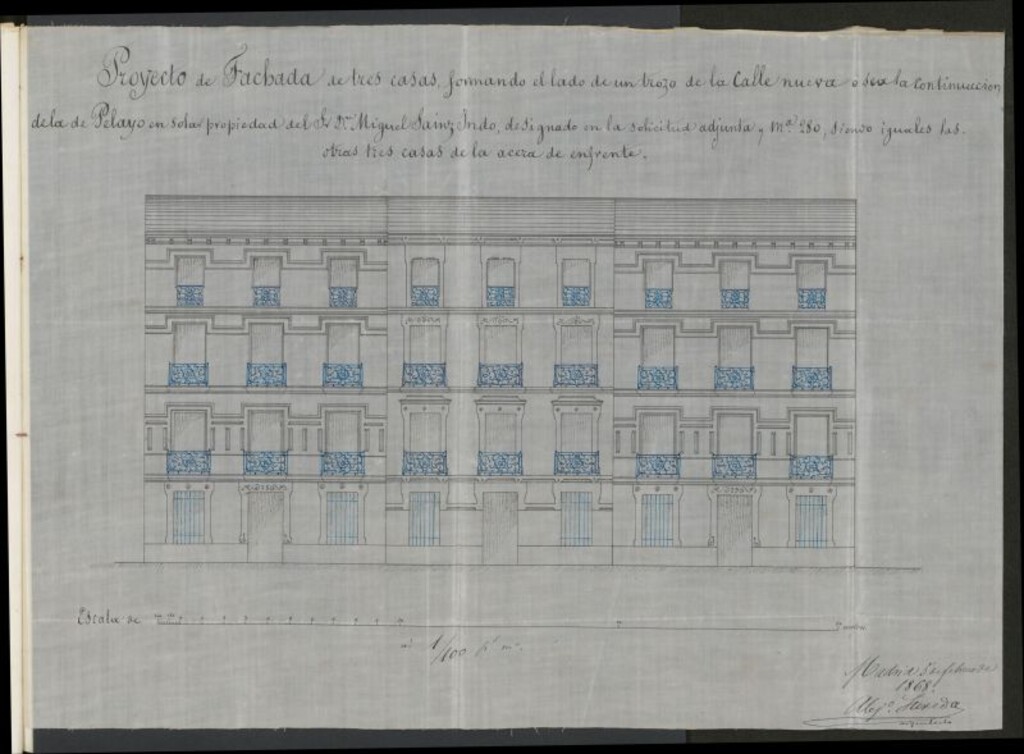 Proyecto de Fachada de tres casas, formando el lado de un trozo de la Calle nueva o sea la continuacion
de la de Pelayo en solar propiedad del Sr. Dn. Miguel Sainz Indo, designado en la solicitud adjunta y Mª 280, siendo iguales las
otras tres casas de la acera de enfrente.
Escala de
1/100
Madrid 5 de febrero de
1868.
Alejo.
arquitecto